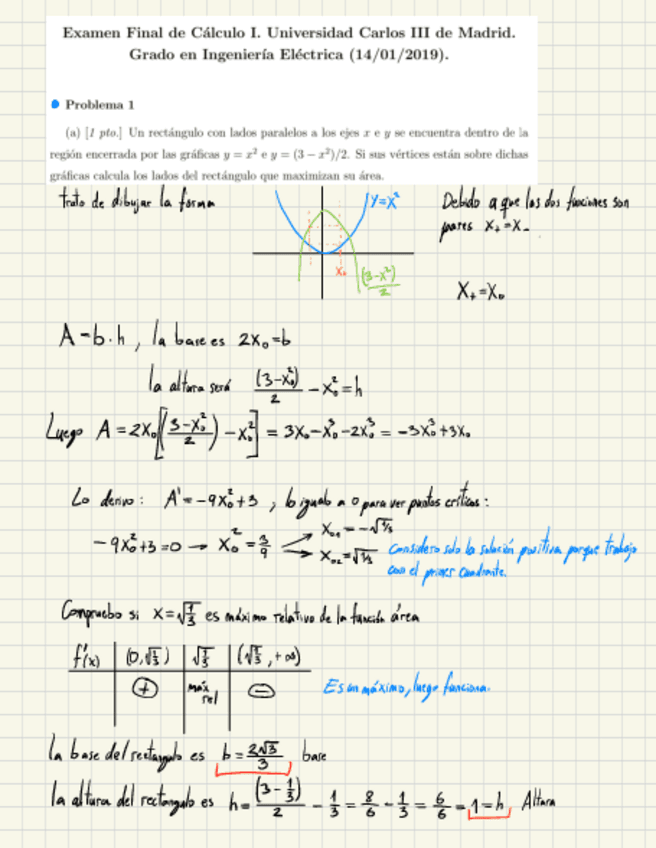 Examen Final de Cálculo I. Universidad Carlos III de Madrid.
Grado en Ingeniería Eléctrica (14/01/2019).
● Problema 1
(a) [1 pto.] Un rectángulo con lados paralelos a los ejes x e y se encuentra dentro de la
región encerrada por las gráficas y = x² e y = (3 − x²)/2. Si sus vértices están sobre dichas
gráficas calcula los lados del rectángulo que maximizan su área.
trato de dibujar la forma
y=x²
Debido a que las dos funciones son
pares X₊=X₋
X₀
(3-x²)/2
X₊=X₀
A=b·h, la base es 2X₀=b
la altura será (3-X₀²)/2 - X₀²=h
Luego A=2X₀[(3-X₀²/2)-X₀²] = 3X₀-X₀³-2X₀³ = -3X₀³+3X₀
Lo derivo: A'=-9X₀²+3, lo igualo a 0 para ver puntos críticos:
-9X₀²+3=0 → X₀²=3/9
X₀₁=-√1/3
X₀₂=√1/3
considero solo la solución positiva porque trabajo
con el primer cuadrante.
Compruebo si X=√1/3 es máximo relativo de la función área
f'(x) | (0,√1/3) | √1/3 | (√1/3,+∞)
⊕ | máx rel | ⊖
Es un máximo, luego funciona.
la base del rectangulo es b=2√3/3 base
la altura del rectangulo es h=(3-1/3)/2 - 1/3 = 8/6 - 1/3 = 6/6 = 1=h Altura